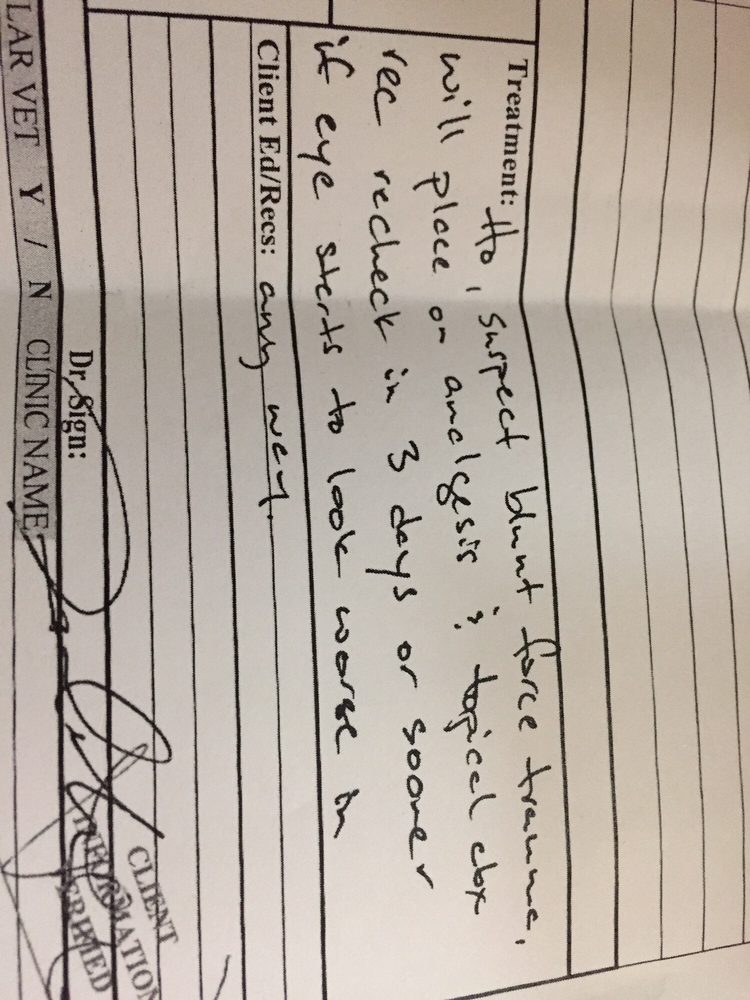 Treatment: Ho, suspect blunt force trauma,
will place on analgesia & topical abx
rec recheck in 3 days or sooner
if eye starts to look worse in
Client Ed/Recs: any way.
Dr. Sign:
LAR VET Y / N CLINIC NAME:
CLIENT
INFORMATION
VERIFIED